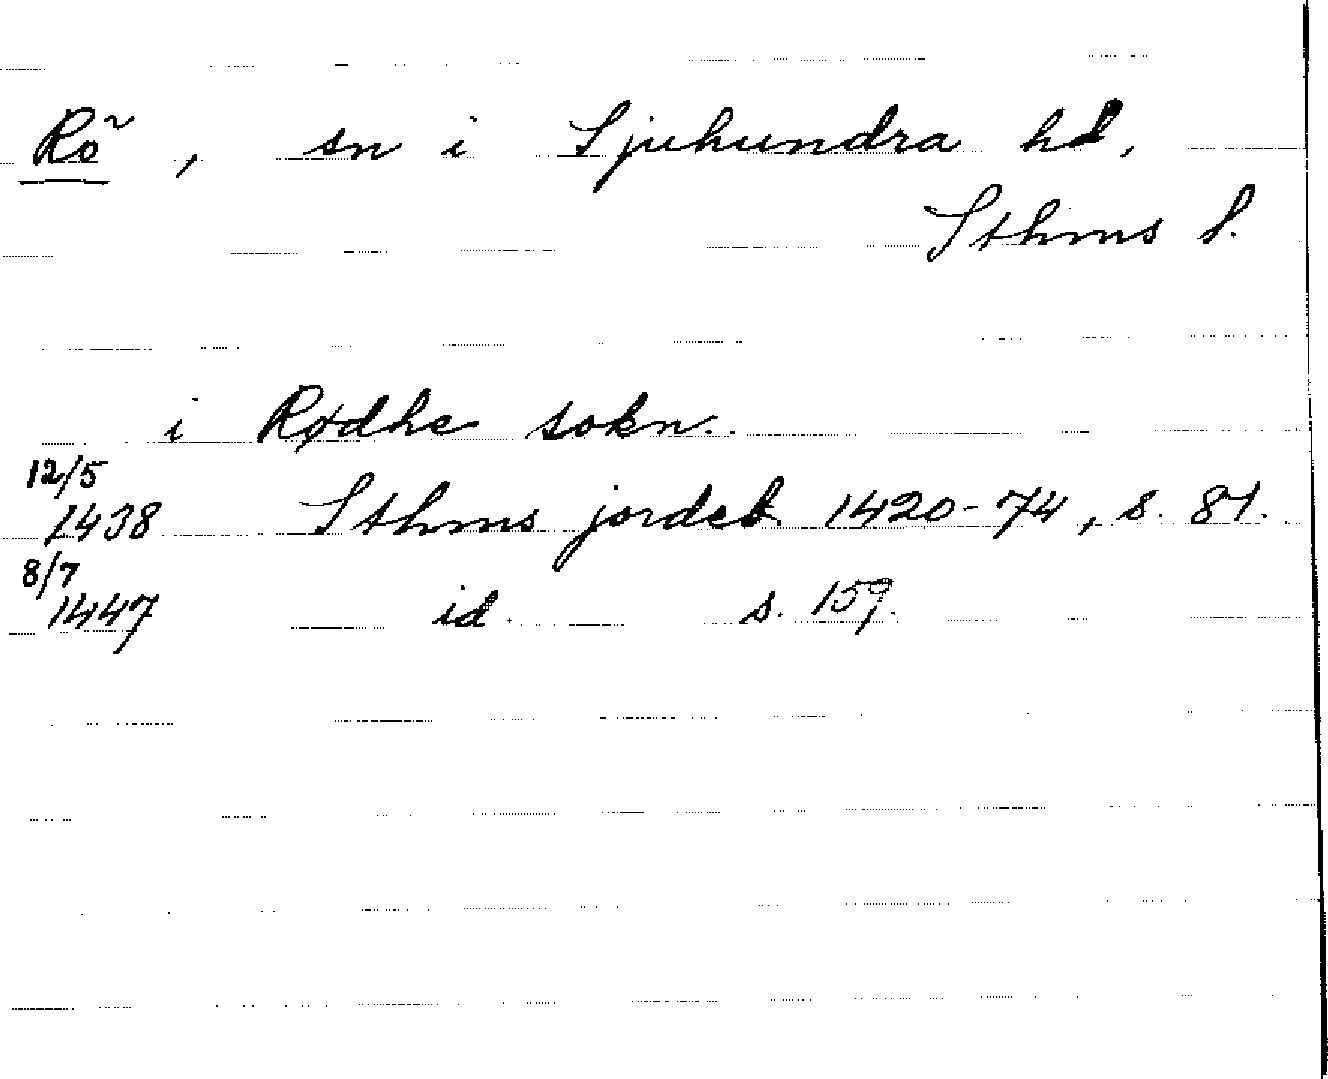 Rö, sn i Sjuhundra hd,
Sthms l.
i Rødhe sokn.
12/5
1438 Sthms jordeb 1420-74, s. 81.
8/7
1447 id. s. 159.